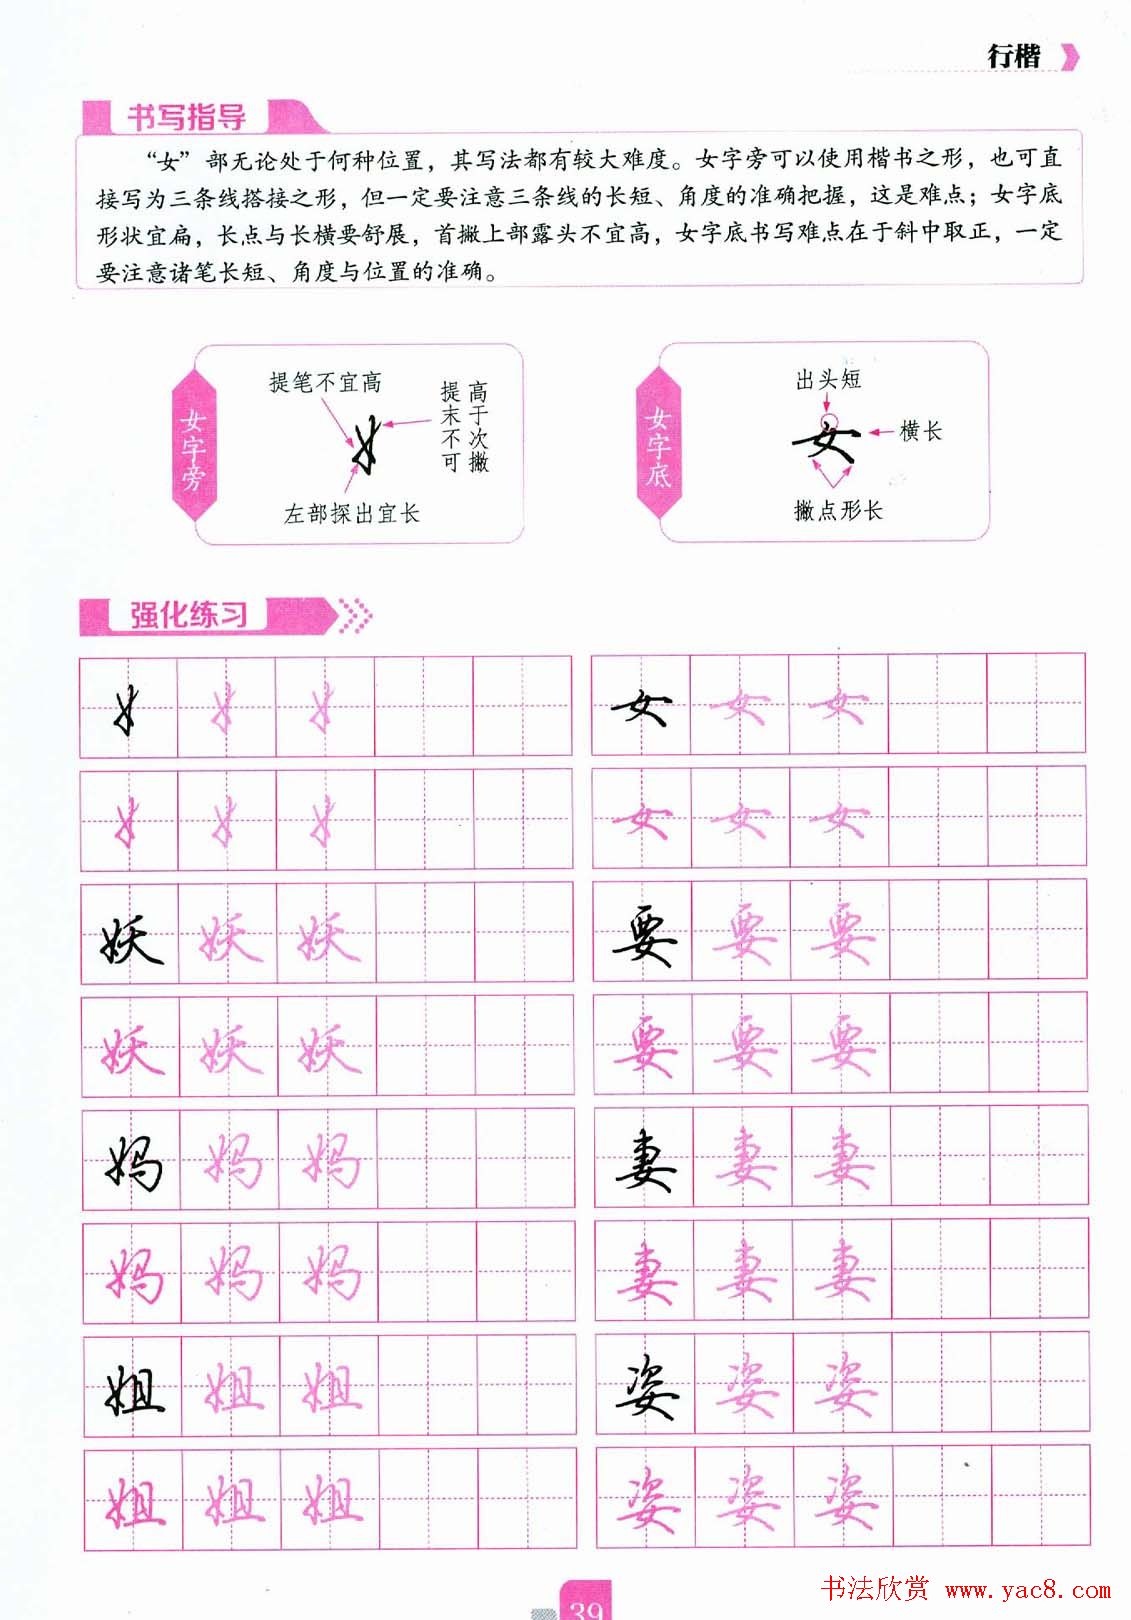 行楷
书写指导
“女”部无论处于何种位置，其写法都有较大难度。女字旁可以使用楷书之形，也可直
接写为三条线搭接之形，但一定要注意三条线的长短、角度的准确把握，这是难点；女字底
形状宜扁，长点与长横要舒展，首撇上部露头不宜高，女字底书写难点在于斜中取正，一定
要注意诸笔长短、角度与位置的准确。
女字旁
提笔不宜高
提末不可
高于次撇
女
左部探出宜长
女字底
出头短
女
横长
撇点形长
强化练习
女 女 女
女 女 女
女 女 女
女 女 女
妖 妖 妖
要 要 要
妖 妖 妖
要 要 要
妈 妈 妈
妻 妻 妻
妈 妈 妈
妻 妻 妻
姐 姐 姐
姿 姿 姿
姐 姐 姐
姿 姿 姿
39
书法欣赏 www.yac8.com